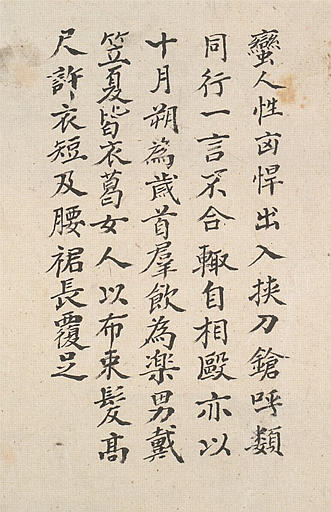 蠻人性㐫悍出入挾刀鎗呼類
同行一言不合輙自相毆亦以
十月朔為歲首羣飲為楽男戴
笠夏皆衣葛女人以布束髮髙
尺許衣短及腰裙長覆足